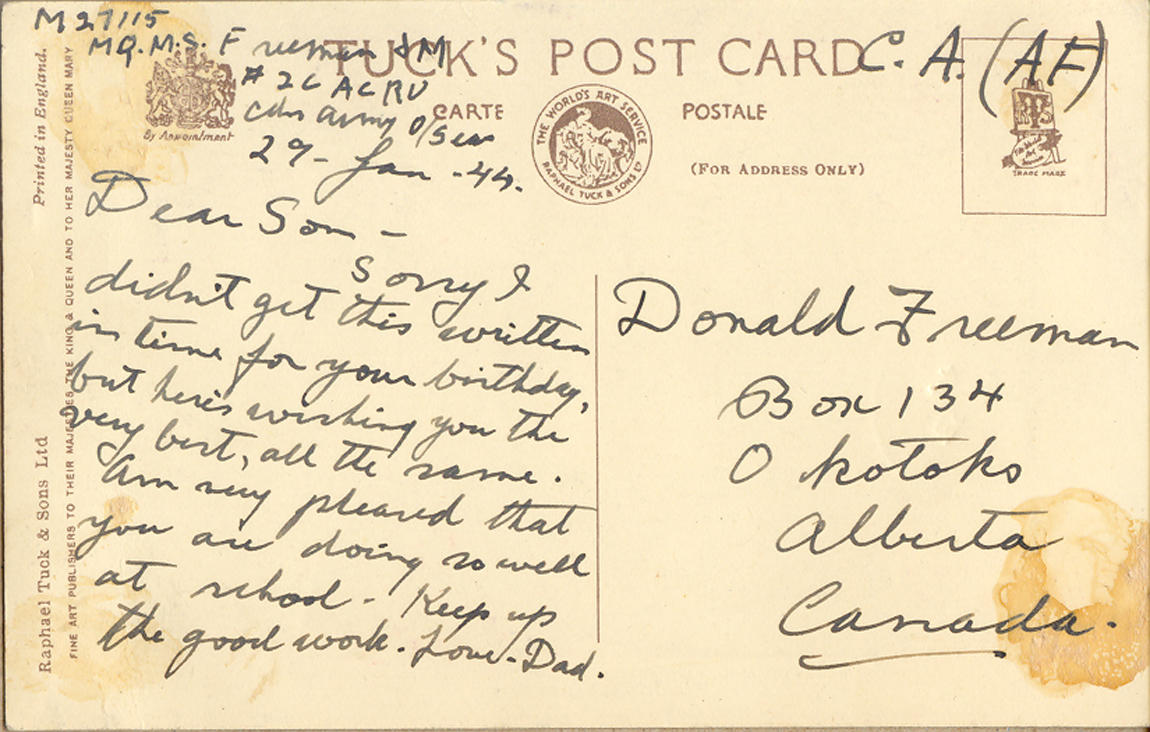 M27115
MQ.M.S. Freeman JM
#2C ACRU
Cdn Army O/Seas
29 - Jan - 44.
C. A. (AF)
TUCK'S POST CARD
CARTE POSTALE
(FOR ADDRESS ONLY)
By Appointment
THE WORLD'S ART SERVICE
RAPHAEL TUCK & SONS LD
TRADE MARK
Dear Son -
Sorry I
didn't get this written
in time for your birthday,
but here's wishing you the
very best, all the same.
Am very pleased that
you are doing so well
at school - Keep up
the good work. Love - Dad.
Donald Freeman
Box 134
Okotoks
Alberta
Canada.
Raphael Tuck & Sons Ltd Printed in England.
FINE ART PUBLISHERS TO THEIR MAJESTIES THE KING & QUEEN AND TO HER MAJESTY QUEEN MARY